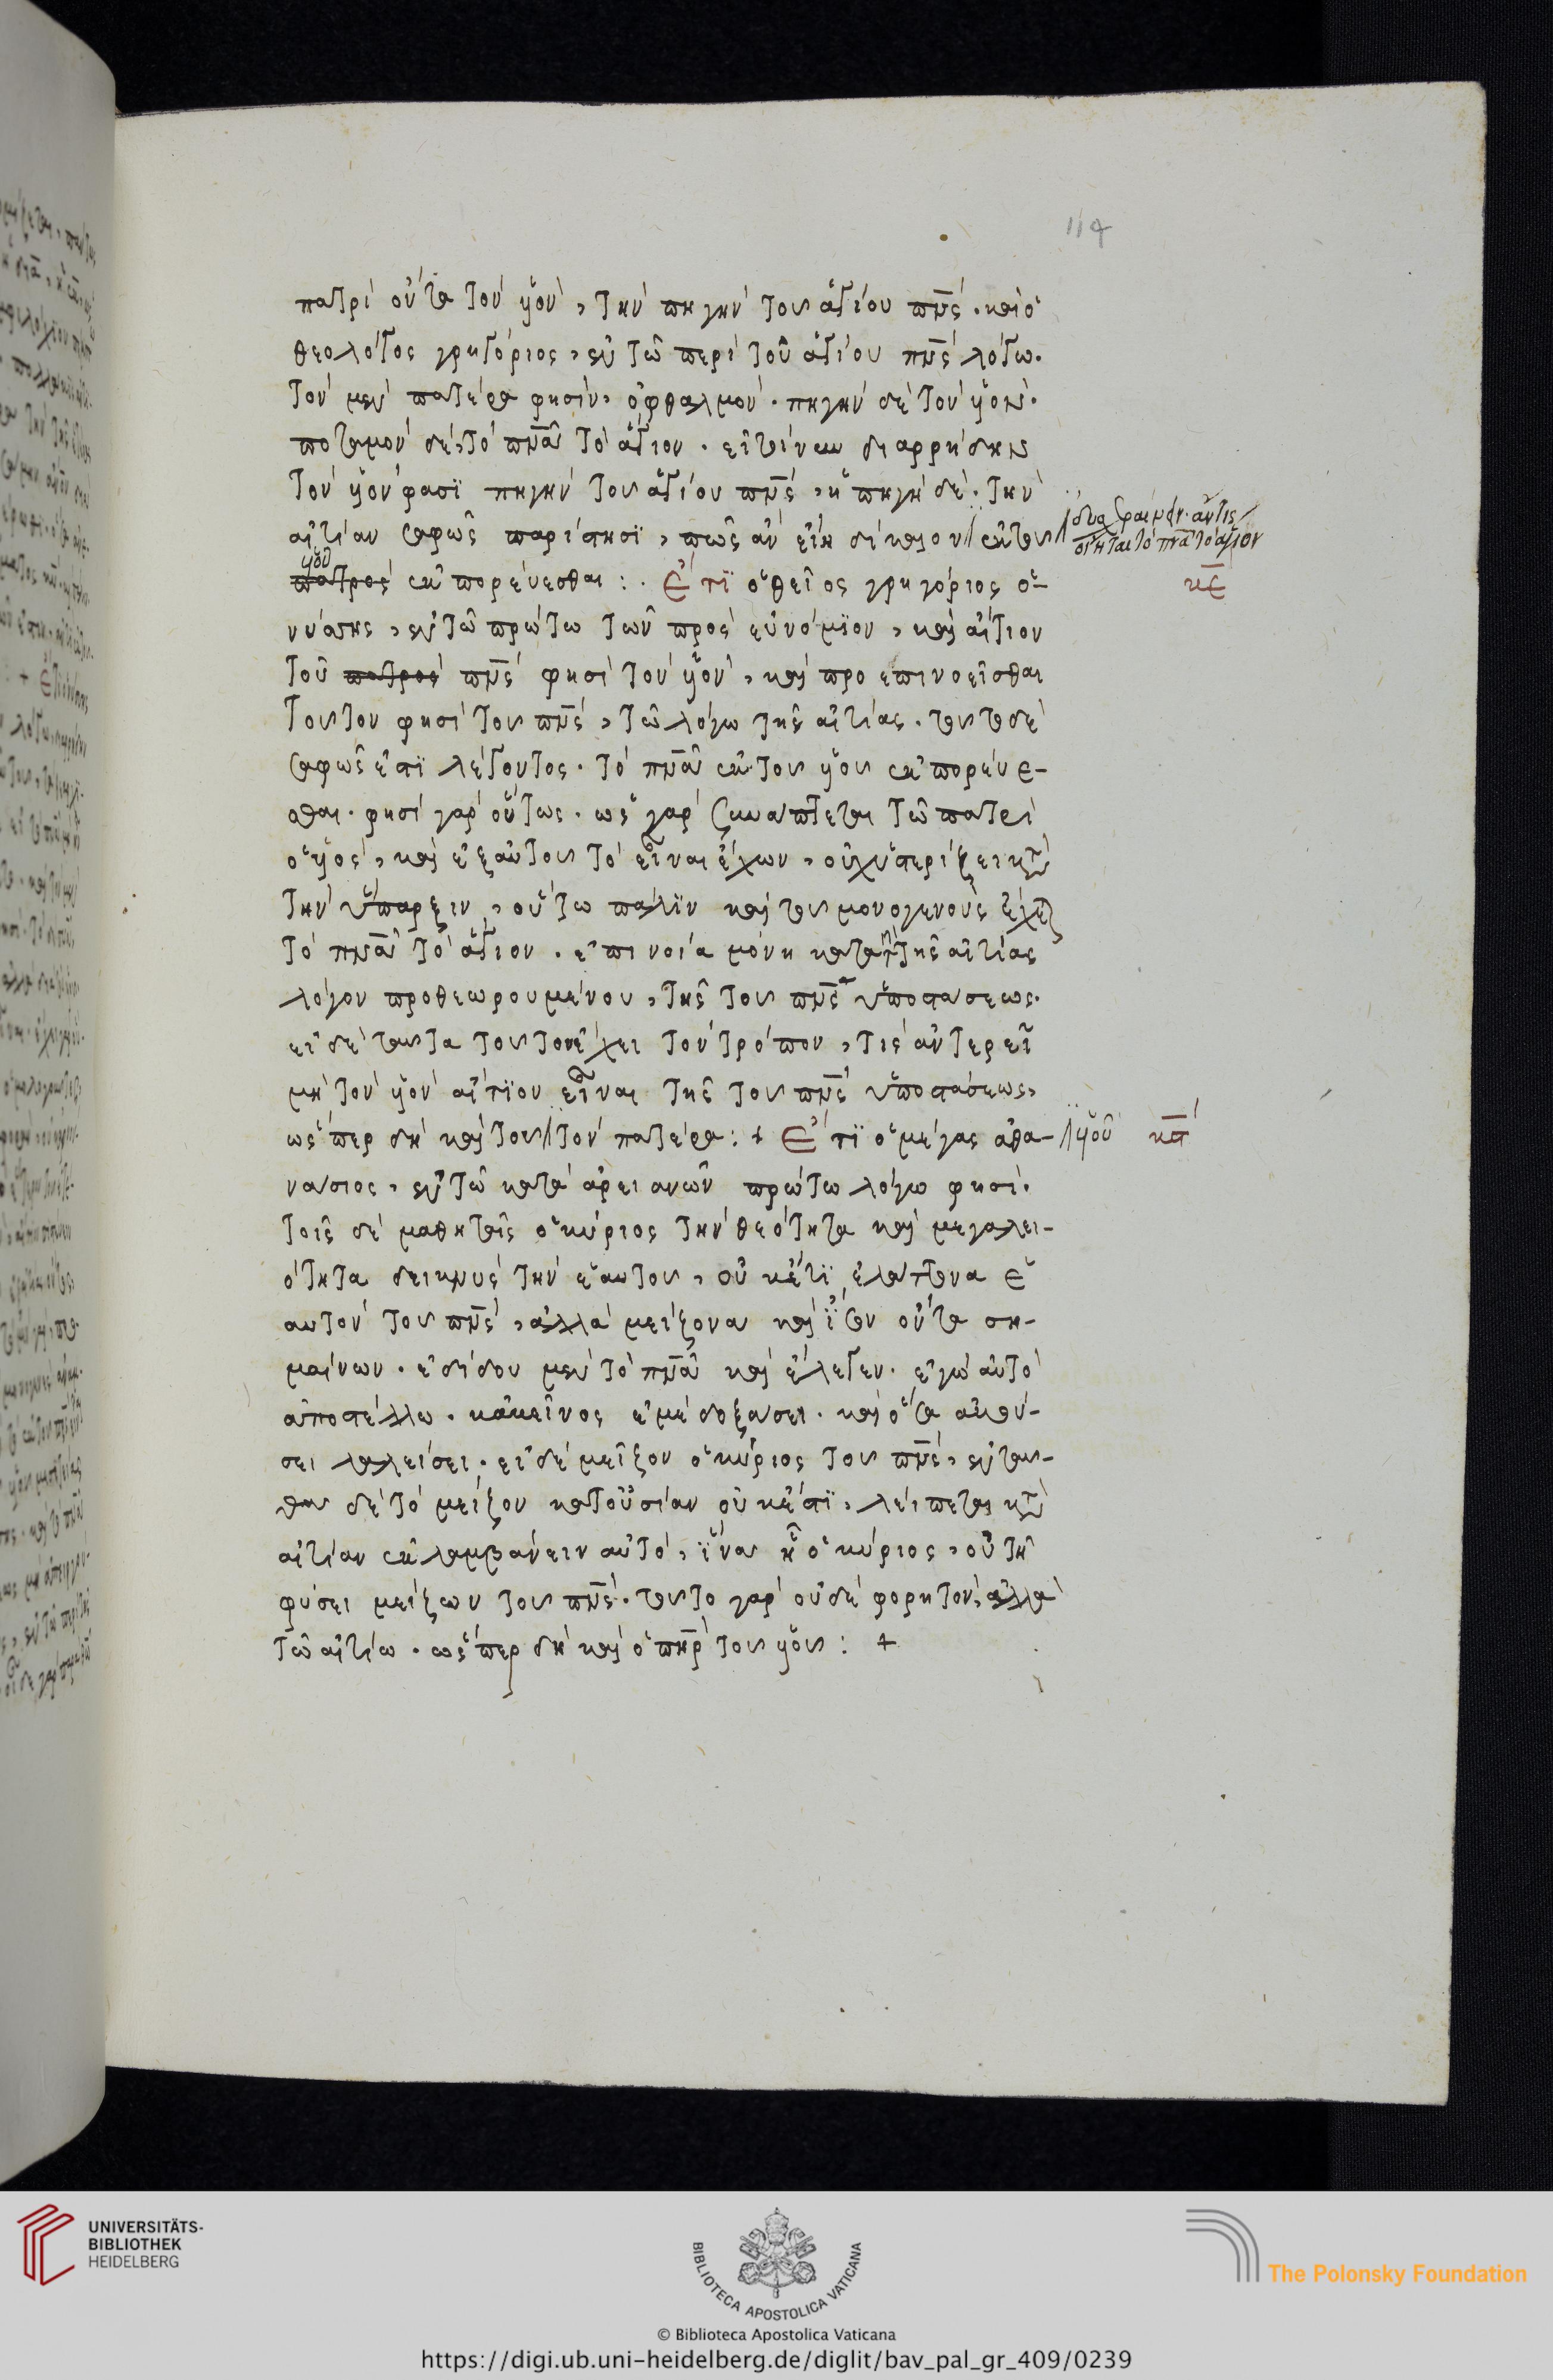 114
πατρὶ ὄντα τὸν ὑὸν, τὴν πηγὴν τοῦ ἁγίου πν̅ς. καὶ ὁ
θεολόγος γρηγόριος, ἐν τῶ περὶ τοῦ ἁγίου πν̅ς λόγω.
τὸν μὲν πατέρα φησὶν, ὀφθαλμὸν. πηγὴν δὲ τὸν ὑὸν.
ποταμὸν δὲ, τὸ πν̅α τὸ ἅγιον. εἰ τοίνυν διαρρήδην
τὸν ὑὸν φασὶ πηγὴν τοῦ ἁγίου πν̅ς, ἡ πηγὴ δὲ. τὴν
αἰτίαν σαφῶς παρίστησι, πῶς ἂν εἴη δίκαιον // ἐκ τοῦ
// ὅλως
σταὶ τὸ πν̅α τὸ ἅγιον
ὑοῦ
πατρὸς ἐκπορεύεσθαι :. Ἔτι ὁ θεῖος γρηγόριος ὁ
κε̅
νύσης, ἐν τῶ πρώτω τῶν πρὸς εὐνόμιον, καὶ αἴτιον
τοῦ πατρὸς πν̅ς φησὶ τὸν ὑὸν, καὶ προεπινοεῖσθαι
τοῦτον φησὶ τοῦ πν̅ς, τῶ λόγω τῆς αἰτίας. τοῦτο δὲ
σαφῶς ἐστὶ λέγοντος. τὸ πν̅α ἐκ τοῦ ὑοῦ ἐκπορεύε-
σθαι. φησὶ γὰρ οὕτως. ὡς γὰρ συνάπτεται τῶ πατρὶ
ὁ ὑὸς, καὶ ἐξ αὐτοῦ τὸ εἶναι ἔχων, οὐχ ὑστερίζει κτ̅
τὴν ὕπαρξιν, οὕτω πάλιν καὶ τοῦ μονογενοῦς ἔχεται
τὸ πν̅α τὸ ἅγιον. ἐπινοία μόνη κατὰ τὸν τῆς αἰτίας
λόγον προθεωρουμένου, τῆς τοῦ πν̅ς ὑποστάσεως.
εἰ δὲ ταῦτα τοῦτον ἔχει τὸν τρόπον, τίς ἀντερεῖ
μὴ τὸν ὑὸν αἴτιον εἶναι τῆς τοῦ πν̅ς ὑποστάσεως,
ὥσπερ δὴ καὶ τοῦ // τὸν πατέρα : + Ἔτι ὁ μέγας ἀθα-
// ὑοῦ κϛ̅
νάσιος, ἐν τῶ κατὰ ἀρειανῶν πρώτω λόγω φησὶ.
τοῖς δὲ μαθηταῖς ὁ κύριος τὴν θεότητα καὶ μεγαλει-
ότητα δεικνὺς τὴν ἑαυτοῦ, οὐκέτι ἐλάττονα ἑ
αυτὸν τοῦ πν̅ς, ἀλλὰ μείζονα καὶ ἴσον ὄντα ση-
μαίνων. ἐδίδου μὲν τὸ πν̅α καὶ ἔλεγεν. ἐγὼ αὐτὸ
ἀποστέλλω. κἀκεῖνος ἐμὲ δοξάσει. καὶ ὅσα ἀκού-
σει λαλείσει. εἰ δὲ μεῖζον ὁ κύριος τοῦ πν̅ς, ἐνταῦ-
θα δὲ τὸ μεῖζον κατ' οὐσίαν οὐκ ἔστι, λείπεται κτ̅
αἰτίαν ἐκλαμβάνειν αὐτὸ, ἵνα ἦ ὁ κύριος, οὐ τῆ
φύσει μείζων τοῦ πν̅ς. τοῦτο γὰρ οὐδὲ φορητὸν, ἀλλὰ
τῶ αἰτίω. ὥσπερ δὴ καὶ ὁ πη̅ρ τοῦ ὑοῦ : +
UNIVERSITÄTS-
BIBLIOTHEK
HEIDELBERG
BIBLIOTECA APOSTOLICA VATICANA
The Polonsky Foundation
© Biblioteca Apostolica Vaticana
https://digi.ub.uni-heidelberg.de/diglit/bav_pal_gr_409/0239